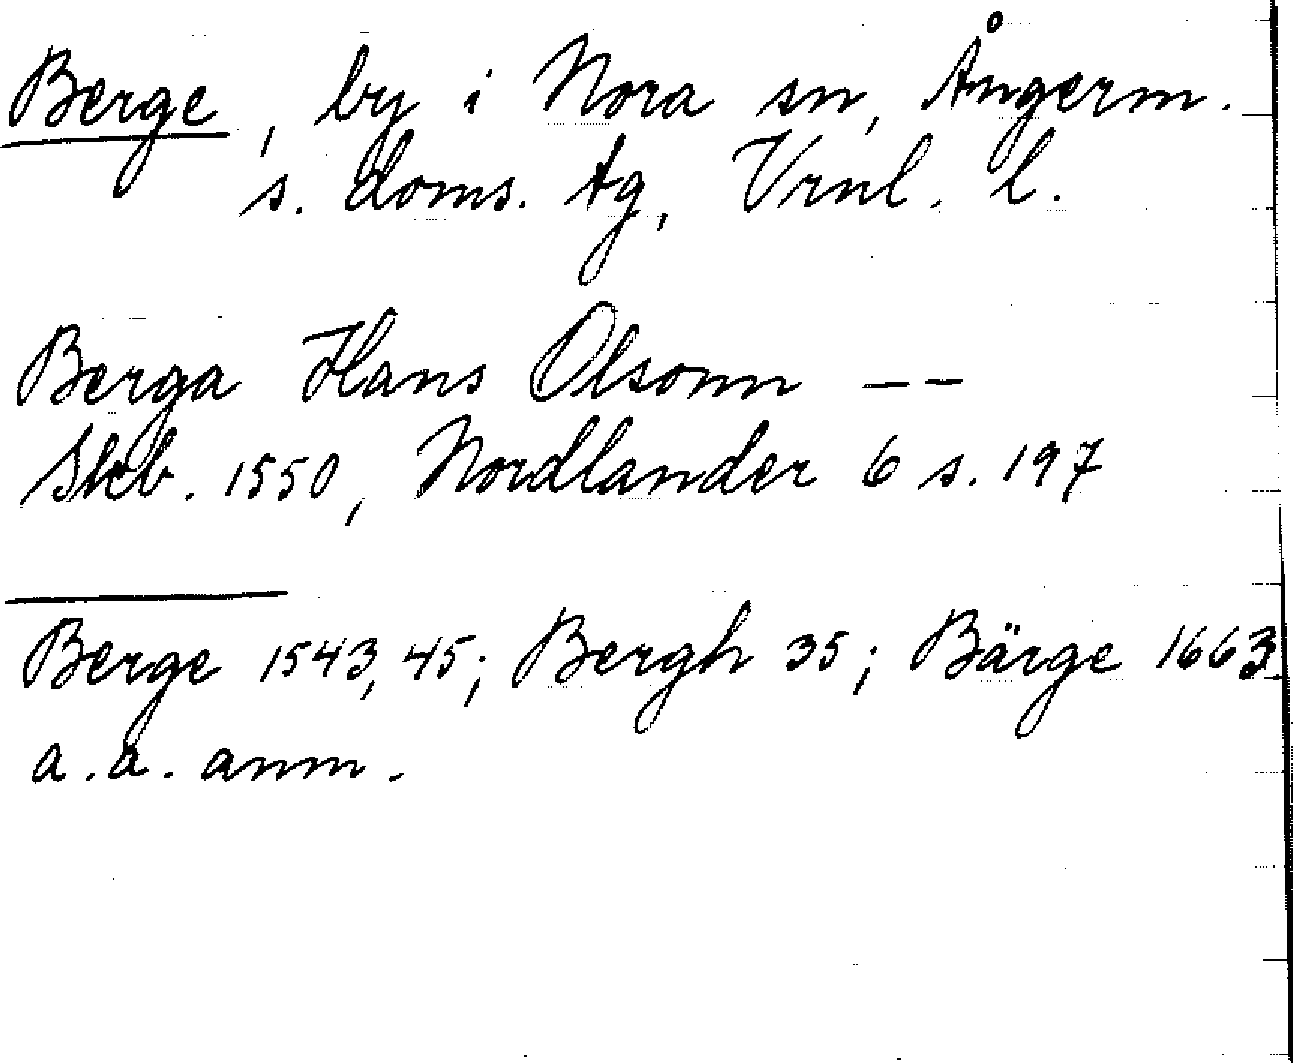 Berge, by i Nora sn, Ångerm.
s. doms. tg, Vrnl. l.
Berga Hans Olsonn — —
Skb. 1550, Nordlander 6 s. 197
Berge 1543, 45; Bergh 35; Bärge 1663
a.a. anm.